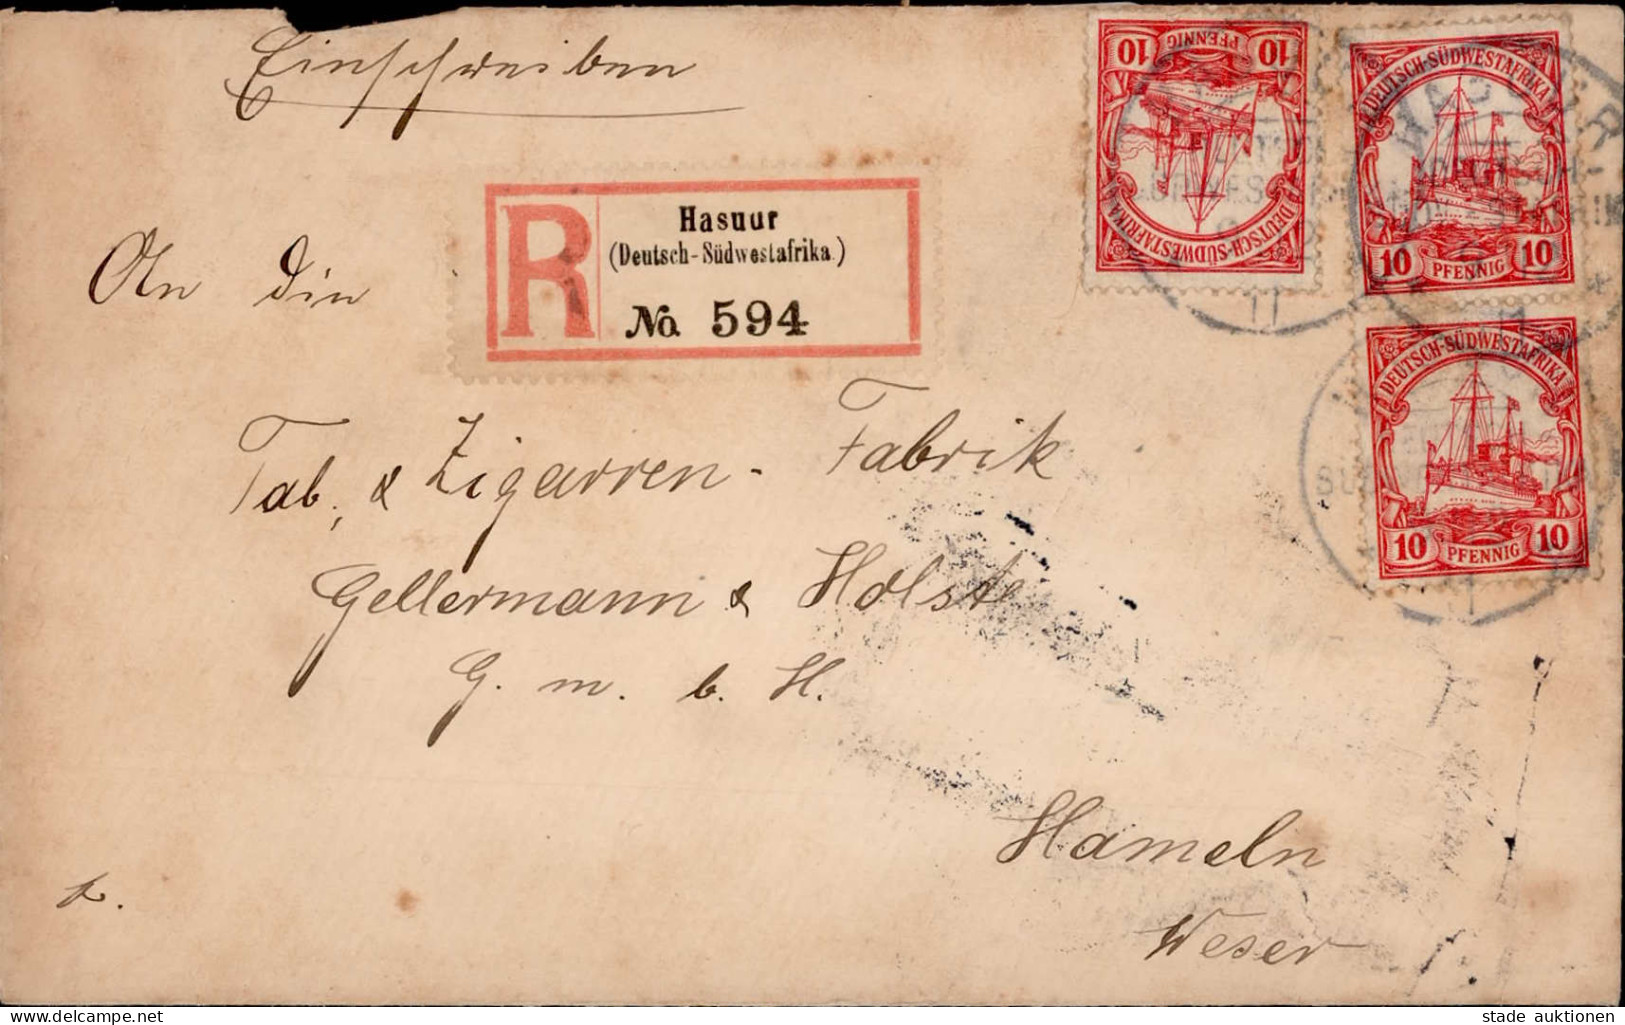 Einschreiben
10 PFENNIG 10
DEUTSCH-SÜDWESTAFRIKA
DEUTSCH-SÜDWESTAFRIKA
10 PFENNIG 10
DEUTSCH-SÜDWESTAFRIKA
10 PFENNIG 10
HASUUR
R
Hasuur
(Deutsch-Südwestafrika.)
No. 594
An die
Tab. & Zigarren-Fabrik
Gellermann & Holste
G. m. b. H.
Hameln
Weser
delcampe.net
stade auktionen